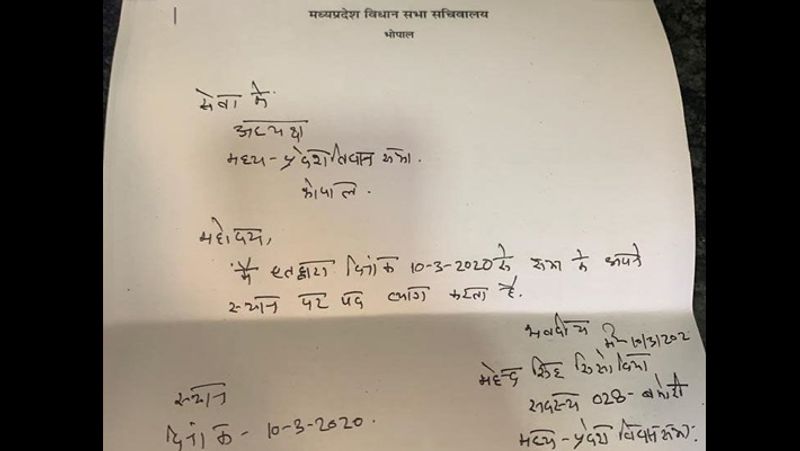 मध्यप्रदेश विधान सभा सचिवालय
भोपाल
सेवा में
अध्यक्ष
मध्य-प्रदेश विधान सभा.
भोपाल.
महोदय,
मैं एतद्द्वारा दिनांक 10-3-2020 से सभा के अपने
स्थान पर पद त्याग करता हूं.
भवदीय
10/3/202
महेन्द्र सिंह सिसोदिया
स्थान
सदस्य 028- बमोरी
दिनांक - 10-3-2020.
मध्य-प्रदेश विधानसभा.